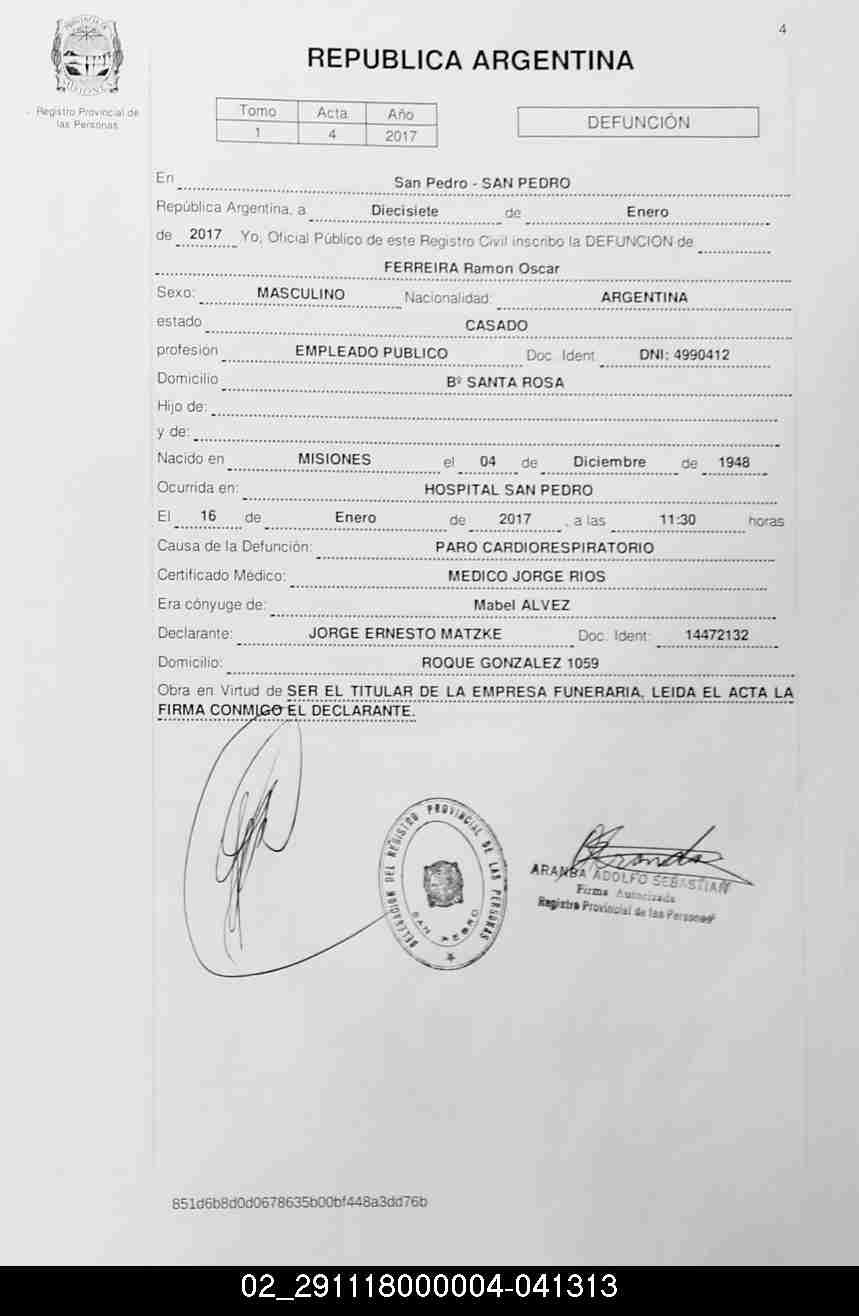 4
PROVINCIA DE
MISIONES
REPUBLICA ARGENTINA
Registro Provincial de
las Personas
Tomo Acta Año
1 4 2017
DEFUNCIÓN
En San Pedro - SAN PEDRO
República Argentina, a Diecisiete de Enero
de 2017 Yo, Oficial Público de este Registro Civil inscribo la DEFUNCION de
FERREIRA Ramon Oscar
Sexo: MASCULINO Nacionalidad: ARGENTINA
estado CASADO
profesion EMPLEADO PUBLICO Doc. Ident. DNI: 4990412
Domicilio Bº SANTA ROSA
Hijo de:
y de:
Nacido en MISIONES el 04 de Diciembre de 1948
Ocurrida en: HOSPITAL SAN PEDRO
El 16 de Enero de 2017 , a las 11:30 horas
Causa de la Defunción: PARO CARDIORESPIRATORIO
Certificado Médico: MEDICO JORGE RIOS
Era cónyuge de: Mabel ALVEZ
Declarante: JORGE ERNESTO MATZKE Doc. Ident: 14472132
Domicilio: ROQUE GONZALEZ 1059
Obra en Virtud de SER EL TITULAR DE LA EMPRESA FUNERARIA, LEIDA EL ACTA LA
FIRMA CONMIGO EL DECLARANTE.
DELEGACION DEL REGISTRO PROVINCIAL DE LAS PERSONAS
SAN PEDRO
ARANDA ADOLFO SEBASTIAN
Firma Autorizada
Registro Provincial de las Personas
851d6b8d0d0678635b00bf448a3dd76b
02_291118000004-041313